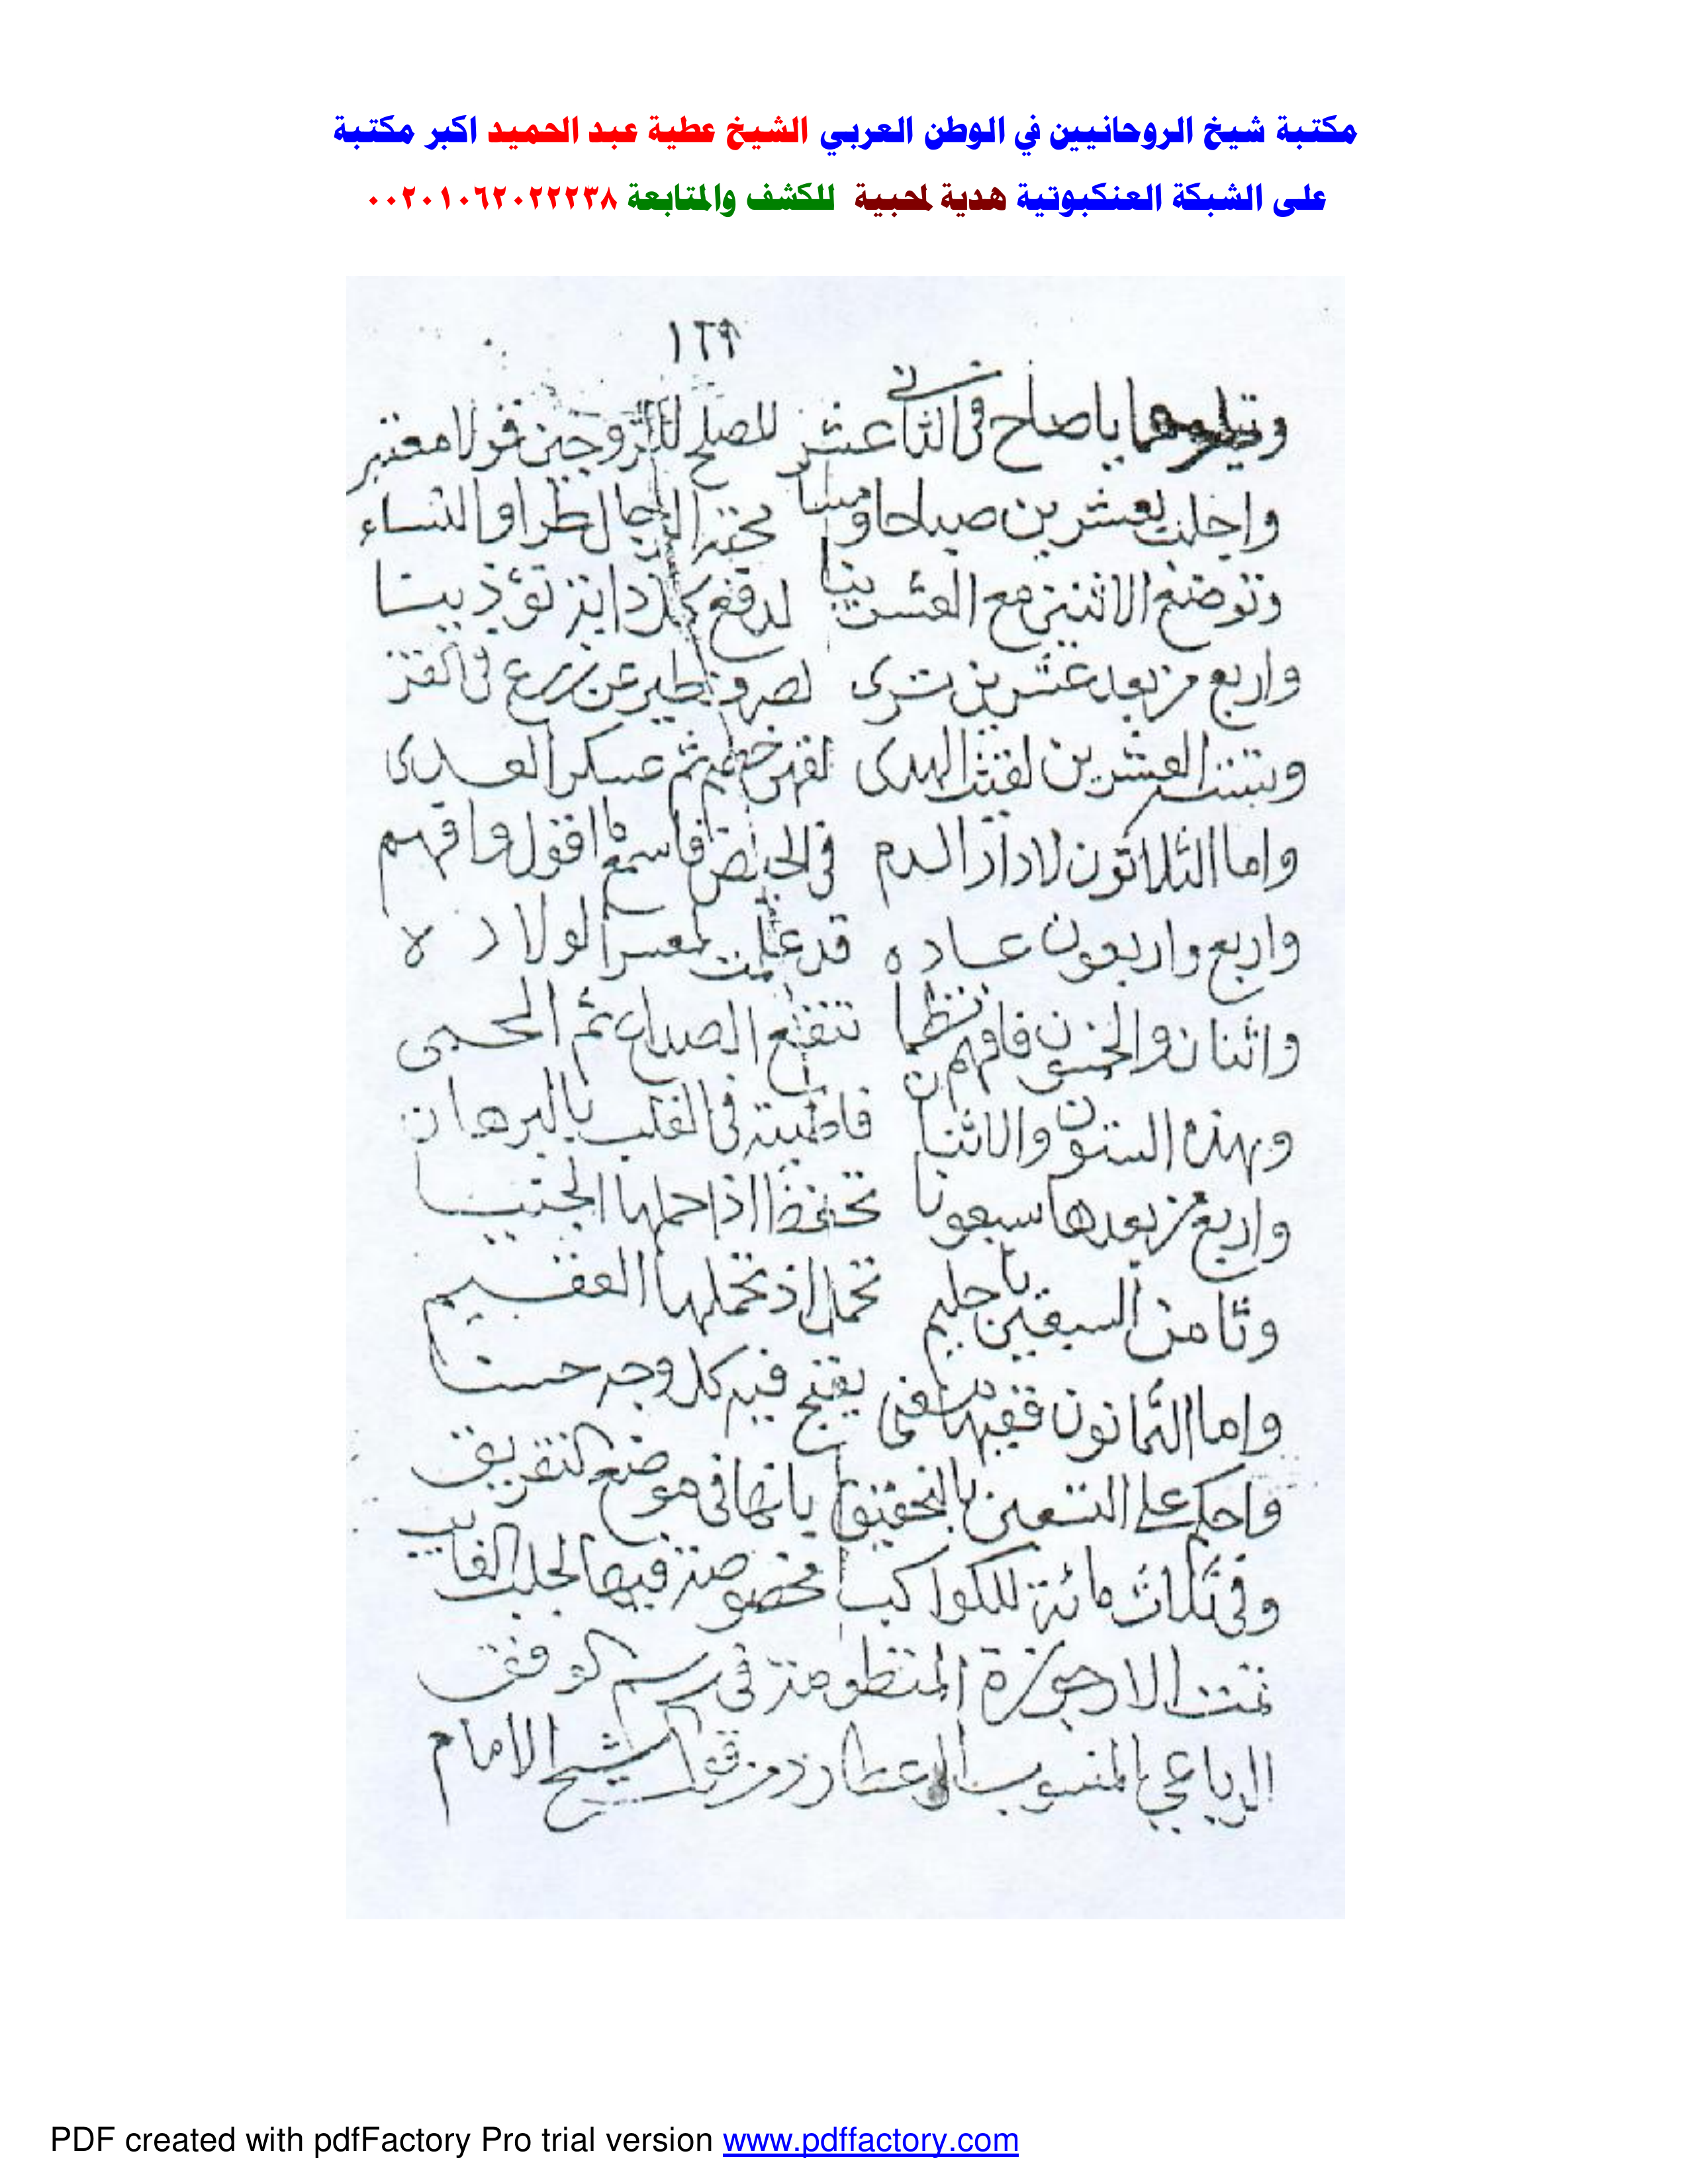 مكتبة شيخ الروحانيين في الوطن العربي الشيخ عطية عبد الحميد اكبر مكتبة
على الشبكة العنكبوتية هدية لمحبية للكشف والمتابعة ٠٠٢٠١٠٦٢٠٢٢٢٣٨
١٦٩
يا صاح في الثاني عشر للصلح للزوجين قولا معتبر
واجلب بعشرين صباحا ومسا محبة الرجال طرا والنساء
وتوضع الاثنين مع العشرينا لدفع كل دابة تؤذينا
واربع من بعد عشرين ترى لصرف طير عن زرع في القرى
العشرين لقيت الهدى لقهر خصم ثم عسكر العدى
واما الثلاثون لادرار الدم في الحيض فاسمع ما اقول وافهم
واربع واربعون عاده قد علمت لمعسر الولاده
واثنان والخمسون فافهم نظما تنفع الصداع ثم الحمى
وبهذه الستون والاثنان في القلب بالبرهان
واربع من بعدها سبعونا تحفظ اذا حملها الجنينا
وثامن السبعين يا حليم تحمل اذ تحملها العقيم
واما الثمانون ففيها يفتح فيه كل وجه حسنا
واحكم على التسعين بالتحقيق بانها في موضع التفريق
وفي ثلاث مائة للكواكب مخصوصة فيها لجلب الغايب
تمت الارجوزة المنظومة في رسم الوفق
الرباعي المنسوب الى عطارد من قول الشيخ الامام
PDF created with pdfFactory Pro trial version www.pdffactory.com